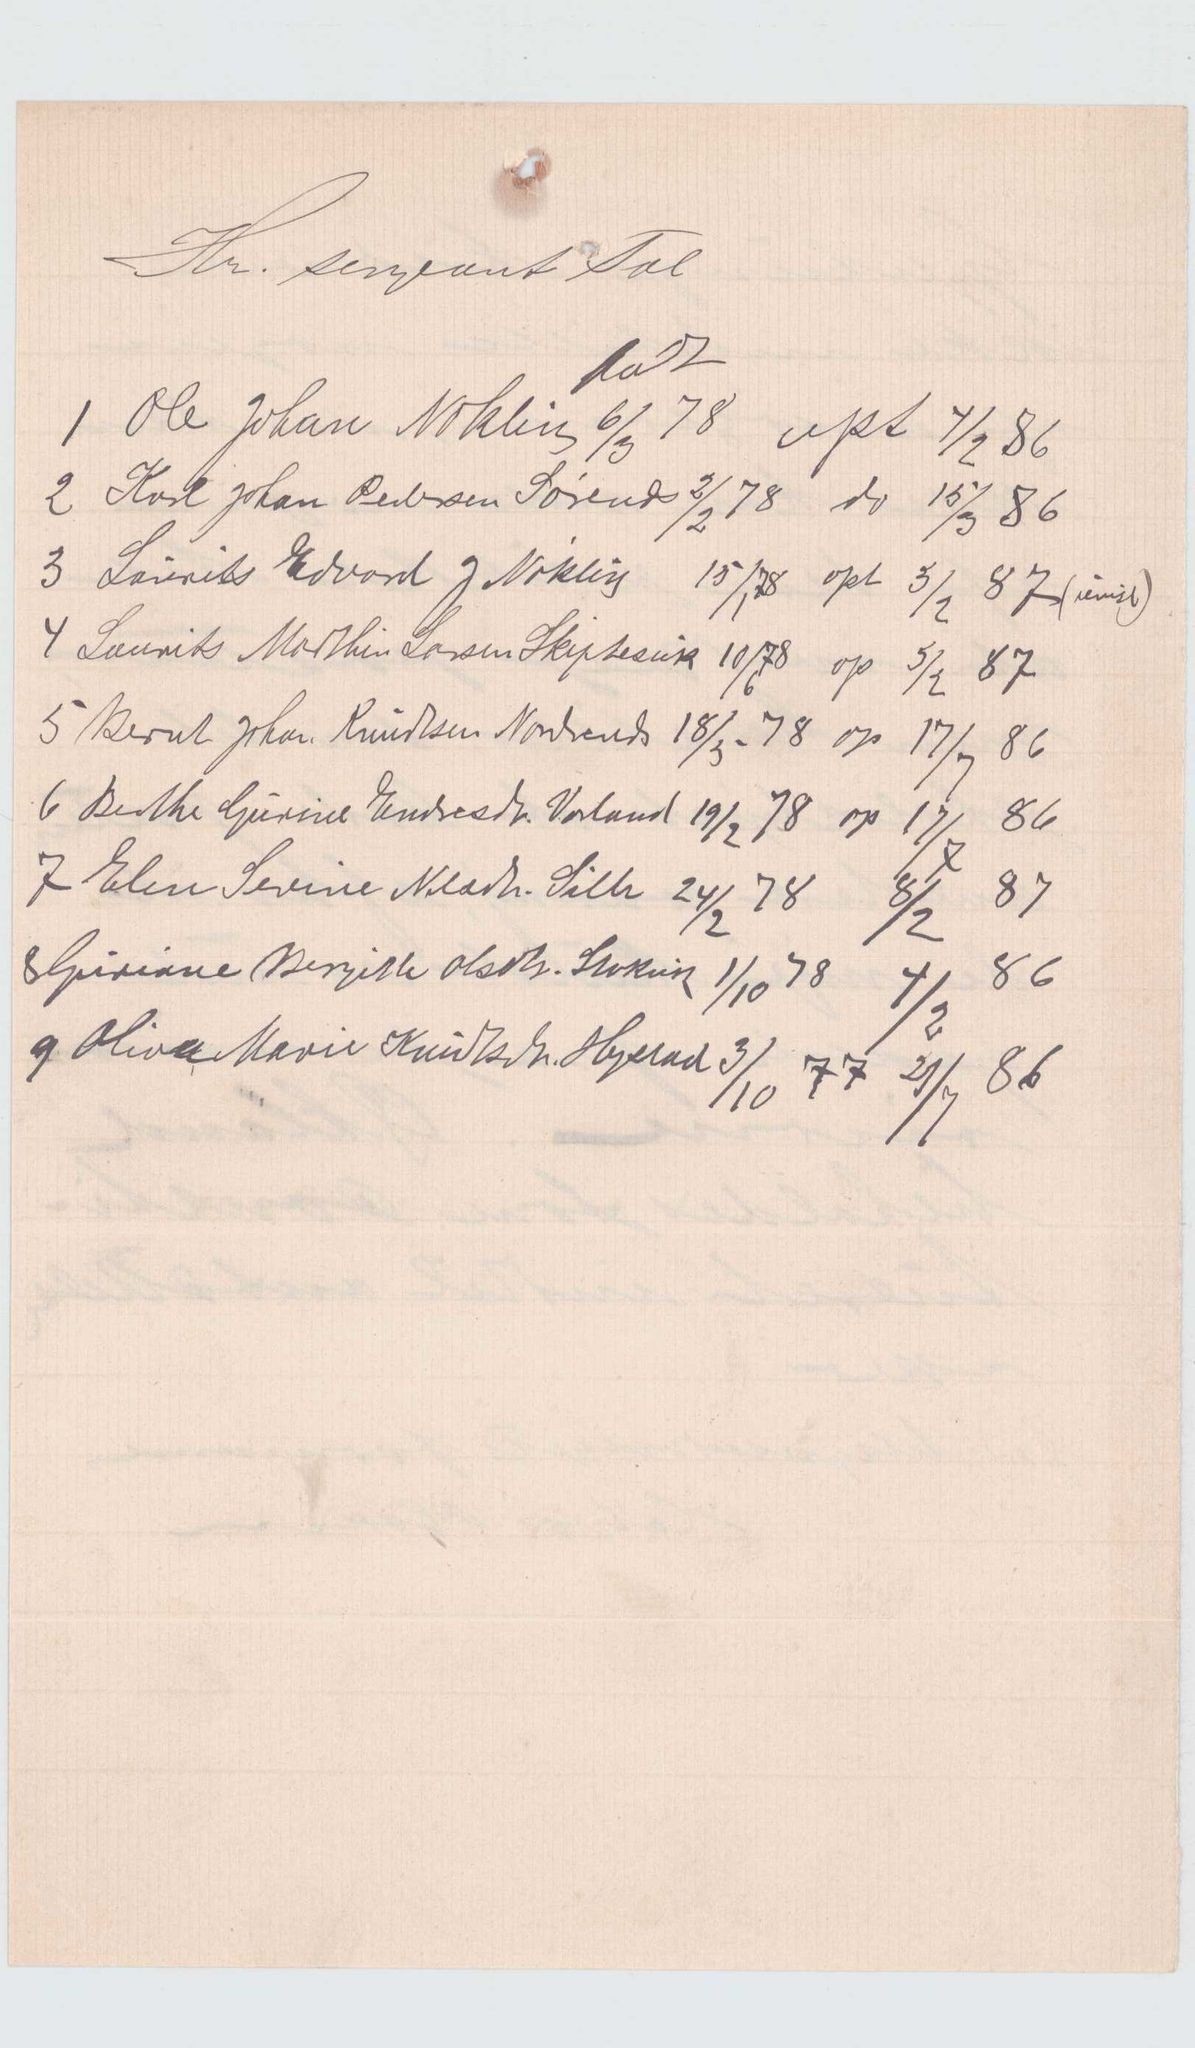 Hr. sergeant Tal
født
1 Ole Johan Nökling 6/3 78 opt 4/2 86
2 Karl Johan Pedersen Sörends 2/2 78 do 15/3 86
3 Laurits Edvard J Nökling 15/1 78 opt 3/2 87
4 Laurits Mathin Larsen 10/6 78 op 5/2 87
5 Bernt Johan Knudtsen Nordrends 18/3 - 78 op 17/7 86
6 Berthe Gurine Endresdtr. Vorland 19/2 78 op 17/7 86
7 Elen Serine Nilsdtr. 24/2 78 8/2 87
8 Guriane Bergitte Olsdtr. 1/10 78 4/2 86
9. Oliva Marie Knudtsdtr. 3/10 77 21/7 86